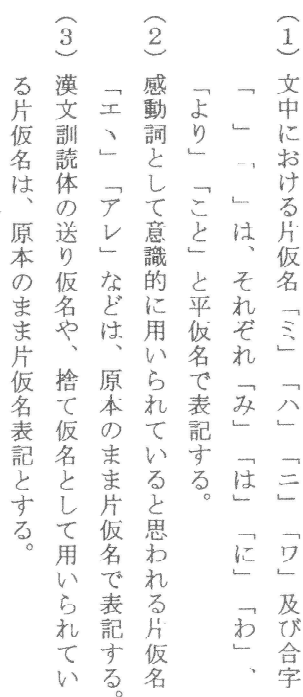 (1) 文中における片仮名「ミ」「ハ」「ニ」「ワ」及び合字
「 」「 」は、それぞれ「み」「は」「に」「わ」、
「より」「こと」と平仮名で表記する。
(2) 感動詞として意識的に用いられていると思われる片仮名
「エヽ」「アレ」などは、原本のまま片仮名で表記する。
(3) 漢文訓読体の送り仮名や、捨て仮名として用いられてい
る片仮名は、原本のまま片仮名表記とする。